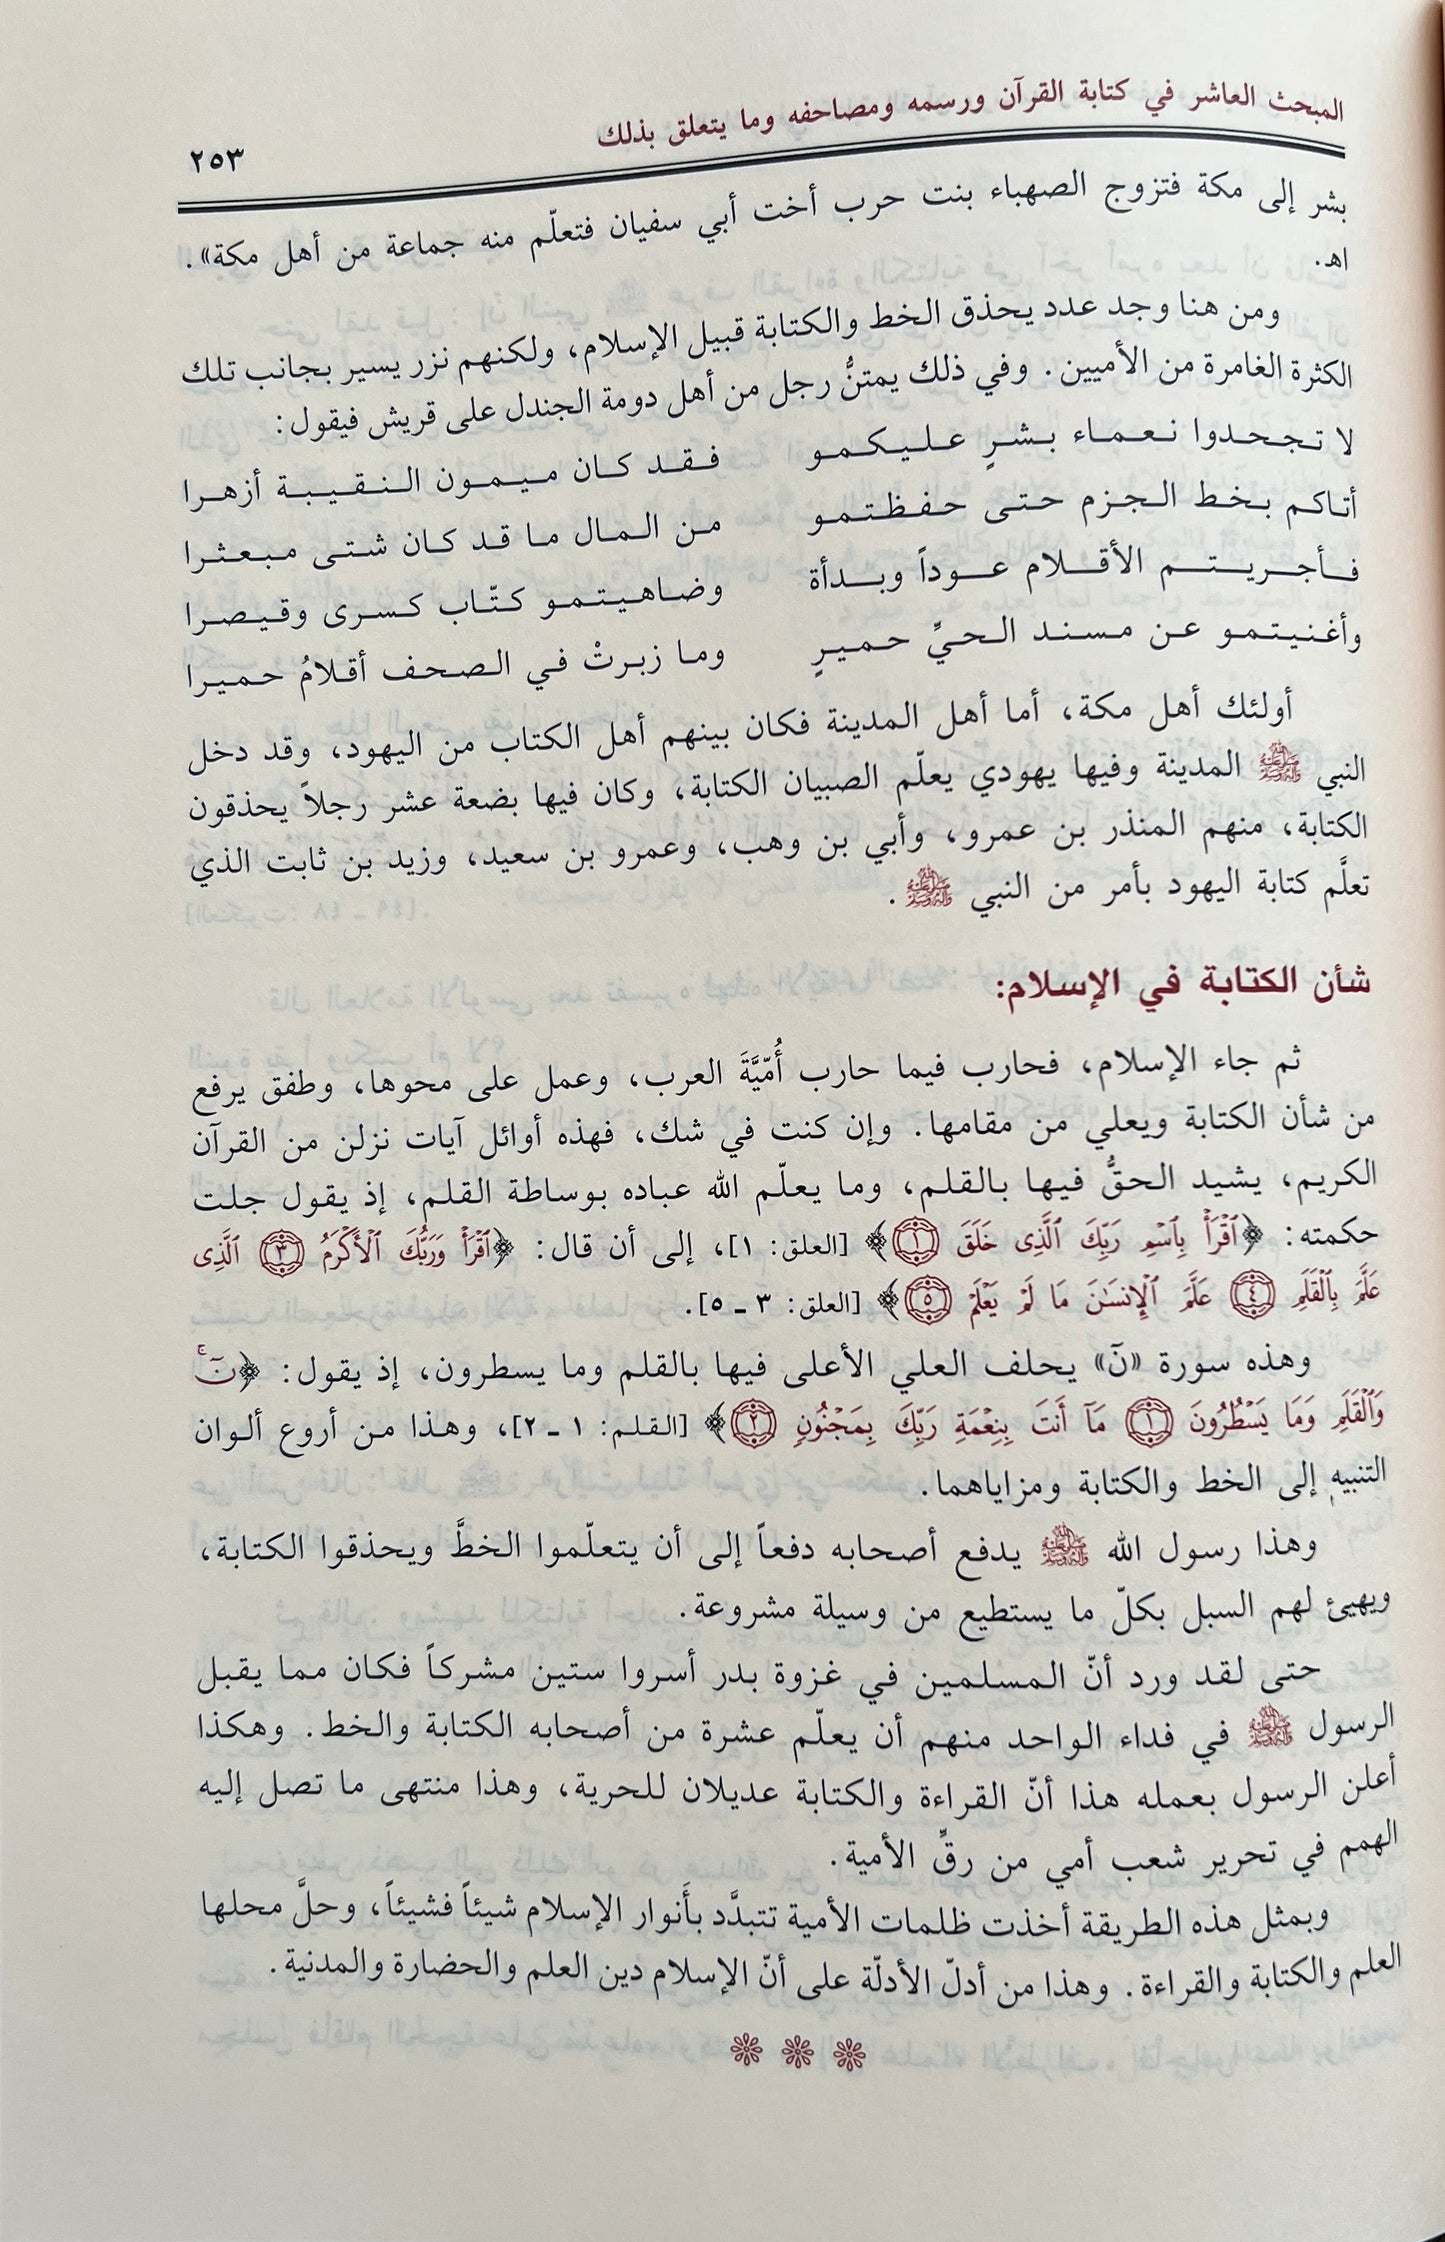 المبحث العاشر في كتابة القرآن ورسمه ومصاحفه وما يتعلق بذلك
٢٥٣
بشر إلى مكة فتزوج الصهباء بنت حرب أخت أبي سفيان فتعلّم منه جماعة من أهل مكة».
اهـ.
ومن هنا وجد عدد يحذق الخط والكتابة قبيل الإسلام، ولكنهم نزر يسير بجانب تلك
الكثرة الغامرة من الأميين. وفي ذلك يمتنُّ رجل من أهل دومة الجندل على قريش فيقول:
لا تجحدوا نعماء بشرٍ عليكمو فقد كان ميمون النقيبة أزهرا
أتاكم بخط الجزم حتى حفظتمو من المال ما قد كان شتى مبعثرا
فأجريتم الأقلام عوداً وبدأة وضاهيتمو كتّاب كسرى وقيصرا
وأغنيتمو عن مسند الحيِّ حميرٍ وما زبرتْ في الصحف أقلامُ حميرا
أولئك أهل مكة، أما أهل المدينة فكان بينهم أهل الكتاب من اليهود، وقد دخل
النبي ﷺ المدينة وفيها يهودي يعلّم الصبيان الكتابة، وكان فيها بضعة عشر رجلاً يحذقون
الكتابة، منهم المنذر بن عمرو، وأبي بن وهب، وعمرو بن سعيد، وزيد بن ثابت الذي
تعلَّم كتابة اليهود بأمر من النبي ﷺ.
شأن الكتابة في الإسلام:
ثم جاء الإسلام، فحارب فيما حارب أُمّيَّةَ العرب، وعمل على محوها، وطفق يرفع
من شأن الكتابة ويعلي من مقامها. وإن كنت في شك، فهذه أوائل آيات نزلن من القرآن
الكريم، يشيد الحقُّ فيها بالقلم، وما يعلّم الله عباده بوساطة القلم، إذ يقول جلت
حكمته: ﴿ٱقْرَأْ بِٱسْمِ رَبِّكَ ٱلَّذِى خَلَقَ ١﴾ [العلق: ١]، إلى أن قال: ﴿ٱقْرَأْ وَرَبُّكَ ٱلْأَكْرَمُ ٣ ٱلَّذِى
عَلَّمَ بِٱلْقَلَمِ ٤ عَلَّمَ ٱلْإِنسَٰنَ مَا لَمْ يَعْلَمْ ٥﴾ [العلق: ٣ ـ ٥].
وهذه سورة «نٓ» يحلف العلي الأعلى فيها بالقلم وما يسطرون، إذ يقول: ﴿نٓۚ
وَٱلْقَلَمِ وَمَا يَسْطُرُونَ ١ مَآ أَنتَ بِنِعْمَةِ رَبِّكَ بِمَجْنُونٍ ٢﴾ [القلم: ١ ـ ٢]، وهذا من أروع ألوان
التنبيه إلى الخط والكتابة ومزاياهما.
وهذا رسول الله ﷺ يدفع أصحابه دفعاً إلى أن يتعلّموا الخطَّ ويحذقوا الكتابة،
ويهيئ لهم السبل بكلّ ما يستطيع من وسيلة مشروعة.
حتى لقد ورد أنّ المسلمين في غزوة بدر أسروا ستين مشركاً فكان مما يقبل
الرسول ﷺ في فداء الواحد منهم أن يعلّم عشرة من أصحابه الكتابة والخط. وهكذا
أعلن الرسول بعمله هذا أنّ القراءة والكتابة عديلان للحرية، وهذا منتهى ما تصل إليه
الهمم في تحرير شعب أمي من رقِّ الأمية.
وبمثل هذه الطريقة أخذت ظلمات الأمية تتبدَّد بأَنوار الإسلام شيئاً فشيئاً، وحلَّ محلها
العلم والكتابة والقراءة. وهذا من أدلّ الأدلّة على أنّ الإسلام دين العلم والحضارة والمدنية.